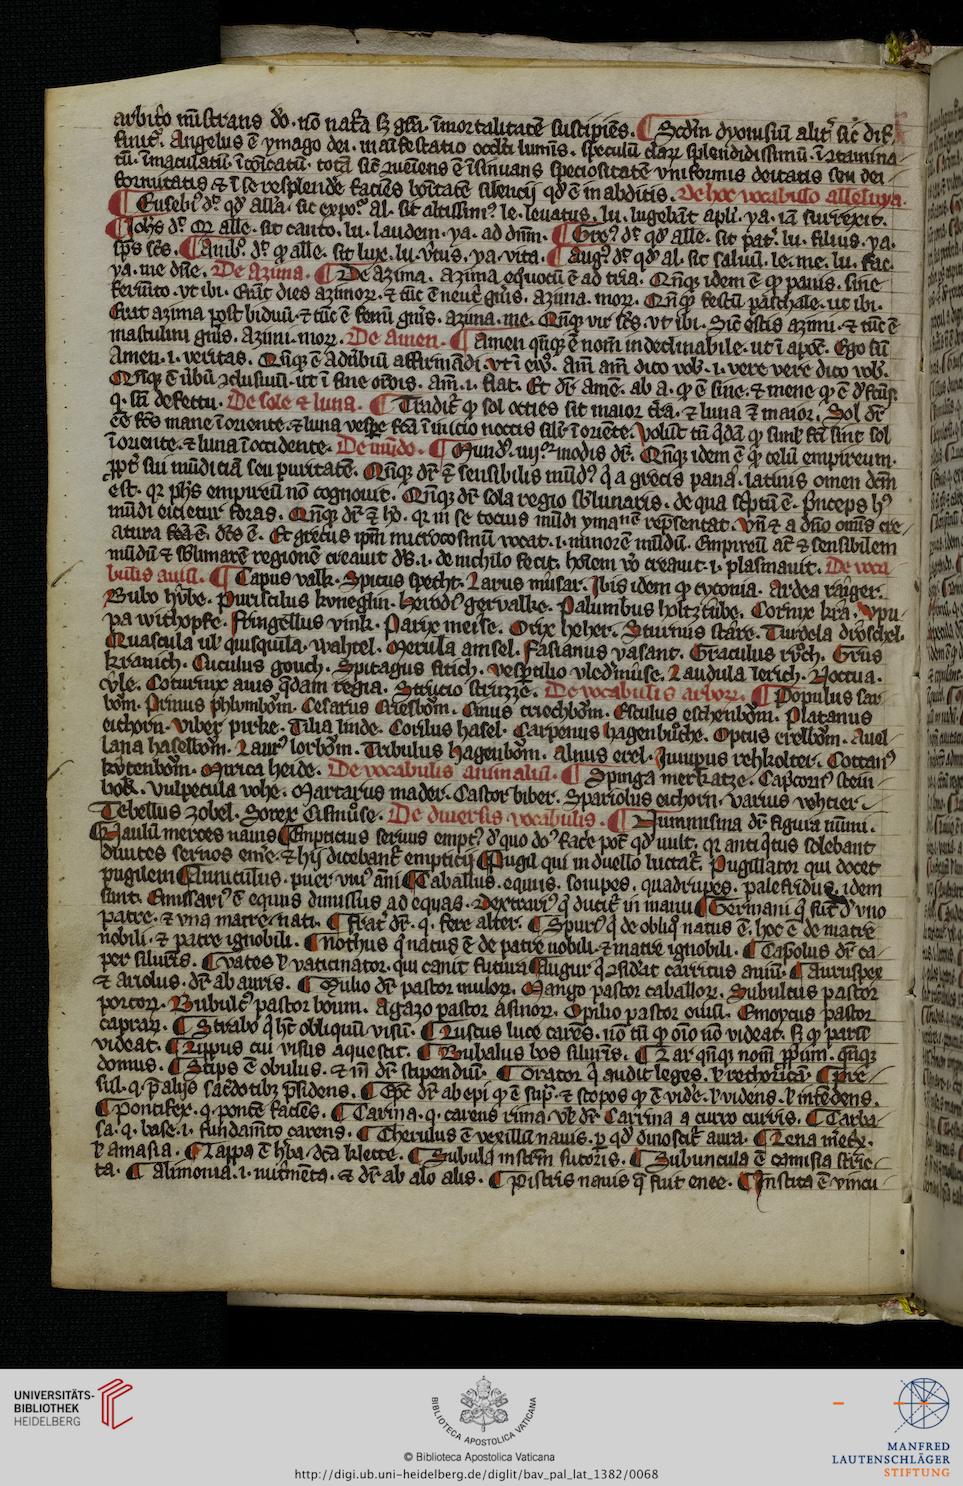 arbit͛o mĩstrans dō. nō nat͛a sꝫ gr̃a. ĩmortalitatẽ suscipiẽs. ¶ Scd̃m dyonisiũ alit͛ sic̃ dif
finit͛. Angelus ẽ ymago dei. mãifestatio occlti lumĩs. speculũ clarꝝ splendidissimũ.
tũ. ĩmaculatũ. totã speciositatẽ vniformis deitatis seu dei
formitatis ⁊ ĩ se resplende faciẽs boĩtatẽ silencij qd̓ ẽ in abditis. De hoc vocabulo alleluya.
¶ Eusebiꝰ dr̃ qd̓ alla. sic expoꝰ al. sit altissimꝰ le. leuatus. lu. lugebãt apl̃i. ya. iã surrexit.
¶ Joh̃s dr̃ alle. sit canto. lu. laudem. ya. ad dn̄m. ¶ Gregꝰ dr̃ qd̓ alle. sit pat͛. lu. filius. ya.
sp̃s sc̃s. ¶ Ambꝰ. dr̃ ꝙ alle. sit lux. lu. v̓tus. ya. vita. ¶ Augꝰ dr̃ qd̓ al. sit saluũ. le. me. lu. fac.
ya. me dñe. De Azima. ¶ De azima. Azima equocũ ẽ ad tria. Qñqꝫ idem ẽ ꝙ panis. sine
fermẽto. vt ibi. Erãt dies azimoꝝ. ⁊ tũc ẽ neut͛ gñis. azima. moꝝ. Qñqꝫ festũ paschale. ut ibi.
Erat azima post biduũ. ⁊ tũc ẽ femĩ gñis. azima. me. Qñqꝫ vir sc̃s. vt ibi. Sic̃ estis azimi. ⁊ tũc ẽ
masculini gñis. Azimi. moꝝ. De amen. ¶ Amen qñqꝫ ẽ nom̃ indeclinabile. ut ĩ apoc̃. Ego sũ
Amen. i. veritas. Qñqꝫ ẽ aduerbiũ affirmãdi. vt ĩ ew̃. Am̃ am̃ dico vob̃. i. vere vere dico vob̃.
Qñqꝫ ẽ v̓bũ ꝯclusiuũ. ut ĩ fine or̃ois. am̃. i. fiat. Et dr̃ amẽ. ab a. ꝙ ẽ sine. ⁊ mene ꝙ ẽ defectꝰ.
q. sñ defectu. De sole ⁊ luna. ¶ Tradit͛ ꝙ sol octies sit maior t͛ra. ⁊ luna maior. Sol dr̃
eẽ fc̃s mane ĩ oriente. ⁊ luna vesꝑe fc̃a ĩ inicio noctis silr̃ ĩ oriẽte. Volũt tñ q̃dã ꝙ simł fc̃i sint sol
ĩ oriente. ⁊ luna ĩ occidente. De mũdo. ¶ Mundꝰ. iiijᵒʳ modis dr̃. Qñqꝫ idem ẽ ꝙ celũ empireum.
ꝓpt͛ sui mũdiciã seu puritatẽ. Qñqꝫ dr̃ sensibilis mũdꝰ q̃ a grecis pan. a latinis omen dc̃m
est. qꝛ ph̃s empireũ nõ cognouit. Qñqꝫ dr̃ sola regio sb̓lunaris. de qua sc̃ptũ ẽ. Pnceps hꝰ
mũdi eicietur foras. Qñqꝫ dr̃ hõ. qꝛ in se tocius mũdi ymagĩẽ rep̃sentat. Vñ ⁊ a dño omĩs cre
atura ẽ. dc̃s ẽ. Et grecus ip̃m microcosmũ vocat. i. minorẽ mũdũ. Empireũ at̃ ⁊ sensibilem
mũdũ ⁊ sb̓lunarẽ regionẽ creauit ds̃. i. de nichilo fecit. hoĩem v̓o creauit. i. plasmauit. De voca
bulis auiũ. ¶ Capus valk. Spicus specht. Larus músar. Ibis idem ꝙ cyconia. Ardea raiger.
Bubo hv̊be. Pursculus kvneglin. Herodꝰ gervalke. Palumbus holtztube. Cornix kra. Vpu
pa withopfe. Fringellus vink. Parix meise. Orix heher. Sturnus stare. Turdela droschel.
Quascula ul̓ quisquila. wahtel. Merula amsel. Fasianus vasant. Graculus rv̊ch. Grus
kranich. Cuculus gouch. Spitagus sitich. Vesp̃tilio vled͛muse. Laudula lerich. Noctua.
cv̊le. Coturnix auis q̃dam regia. Strucio struzze. De vocabulis arboꝝ. ¶ Populus sar
bom. Prinus phlvmbom. Cesarus criesbom. Cinus criechbom. Esculus eschenbom. Platanus
eichorn. Viber pirke. Tilia linde. Corilus hasel. Carpenus hagenbůche. Optus erelbom. Auel
lana haselbom. Laurꝰ lorbom. Tribulus hagenbom. Alnus erel. Iunipus rehkolter. Cottanꝰ
kv̊tenbom. Mirica heide. De vocabulis animaliũ. ¶ Spinga merkatze. Capcornꝰ stein
bok. Vulpecula vohe. Martarus mader. Castor biber. Spariolus eichorn. Varius vehtier.
Tebellus zobel. Sorex cismůse. De diuersis vocabulis. ¶ Nummisma dr̃ figura nũmi.
¶ Naulũ merces nauis ¶ Empticius seruus emptꝰ d̓ quo dñꝰ fac̃e pot̃ qd̓ uult. qꝛ antiq̃tus solebant
diuites seruos em̃e. ⁊ hij dicebant͛ empticij ¶ Pugil qui in duello luctat͛. Pugillator qui docet
pugilem ¶ Anniculus. puer vniꝰ ãni ¶ Caballus. equus. sonipes. quadrupes. palefridus. idem
sunt. Emissariꝰ ẽ equus dimissus ad equas. Dextrariꝰ q̃ ducit͛ in manu ¶ Germani q̃ sũt d̓ vno
patre. ⁊ vna matre nati. ¶ Frat͛ dr̃. q. fere alter. ¶ Spuriꝰ q̃ de obliq̃ natus ẽ. hoc ẽ de matre
nobili. ⁊ patre ignobili. ¶ Nothus q̃ natus ẽ de patre nobili. ⁊ matre ignobili. ¶ Capolus dr̃ ca
per siluris. ¶ Vates ł vaticinator. qui canit futura ¶ Augur q̃ ꝯsid͛at garritus auiũ. ¶ Auruspex
⁊ ariolus. dr̃ ab auris. ¶ Mulio dr̃ pastor muloꝝ. Mango pastor caballoꝝ. Subulcus pastor
porcoꝝ. Bubulcꝰ pastor boum. Agazo pastor asinoꝝ. Opilio pastor ouiũ. Emoycus pastor
capraꝝ. ¶ Strabo q̃ hꝫ obliquũ visũ. ¶ Luscus luce carẽs. nõ tñ ꝙ oĩo nõ videat. sꝫ ꝙ parũ
videat. ¶ Lippus cui visus aquescit. ¶ Bubalus bos siluẽs. ¶ Lar qñqꝫ nom̃ ꝓp̃um. qñqꝫ
domus. ¶ Stips ẽ obulus. ⁊ ĩn̄ dr̃ stipendiũ. ¶ Orator q̃ audit leges. ł rethoricã. ¶ Pre
sul. q. p̃ alijs sac͛dotibꝫ p̃sidens. ¶ Ep̃c dr̃ ab epi ꝙ ẽ sup͛. ⁊ scopos ꝙ ẽ vide. ł videns. ł intẽdens.
¶ Pontifex. q. pontẽ faciẽs. ¶ Carina. q. carens rima. vł dr̃ Carrina a curro curris. ¶ Carba
sa. q. base. i. fundam̃to carens. ¶ Cherulus ẽ vexillũ nauis. ꝑ qd̓ dinoscit͛ aura. ¶ Lena m̃et͛x.
ł amasia. ¶ Lappa ẽ h̓ba. dc̃a klette. ¶ Subula instr̃m sutoris. ¶ Subuncula ẽ camisia stric
ta. ¶ Alimonia. i. nutrim̃ta. ⁊ dr̃ ab alo alis. ¶ Pistris nauis q̃ fuit enee. ¶ Instita ẽ vincu
UNIVERSITÄTS-
BIBLIOTHEK
HEIDELBERG
BIBLIOTECA APOSTOLICA VATICANA
© Biblioteca Apostolica Vaticana
http://digi.ub.uni-heidelberg.de/diglit/bav_pal_lat_1382/0068
MANFRED
LAUTENSCHLÄGER
STIFTUNG